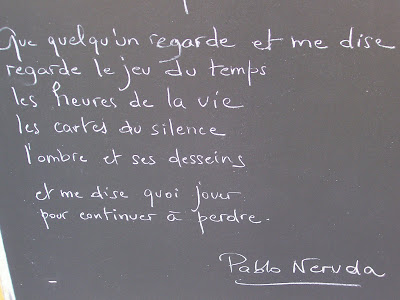 Que quelqu'un regarde et me dise
regarde le jeu du temps
les heures de la vie
les cartes du silence
l'ombre et ses desseins
et me dise quoi jouer
pour continuer à perdre.
Pablo Neruda